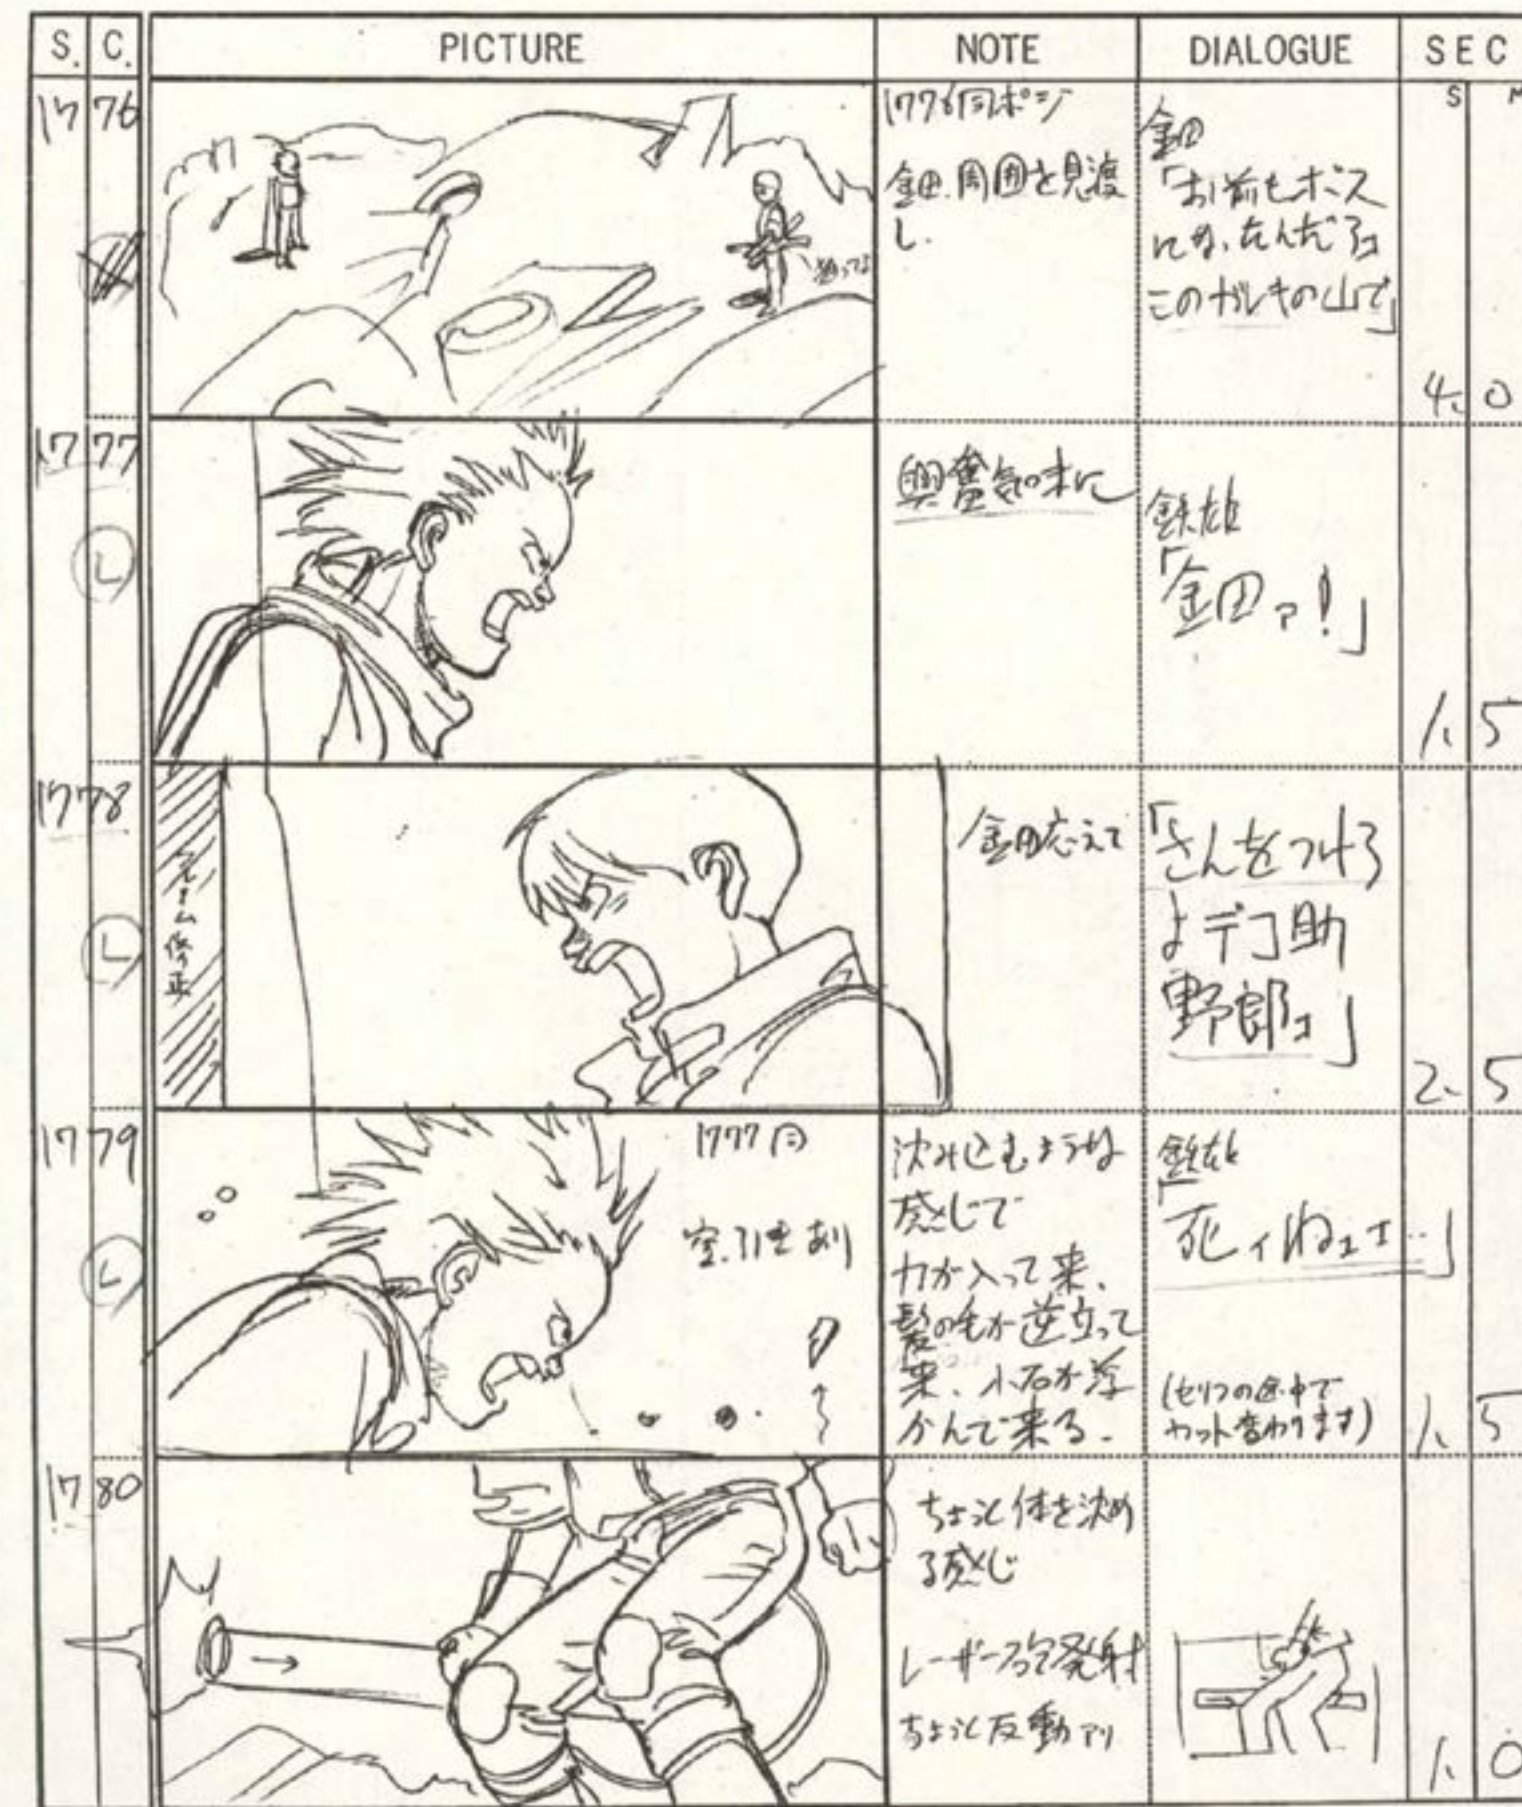 S. C. PICTURE NOTE DIALOGUE SEC
S M
1776
1776同ポジ
金田.周囲を見渡
し.
金田
「お前もボス
になったんだろ
このガレキの山で」
4.0
1777
L
興奮気味に
鉄雄
「金田ァ!」
1.5
1778
L
フレーム修正
金田応えて
「さんをつけろ
よデコ助
野郎ォ」
2.5
1779
L
1777同
空.引きあり
沈み込むような
感じで
力が入って来、
髪の毛が逆立って
来、小石が浮
かんで来る.
鉄雄
「死ィねェェ…」
(セリフの途中で
カット変わります)
1.5
1780
→
ちょっと体を沈め
る感じ
レーザー砲発射
ちょっと反動アリ
1.0